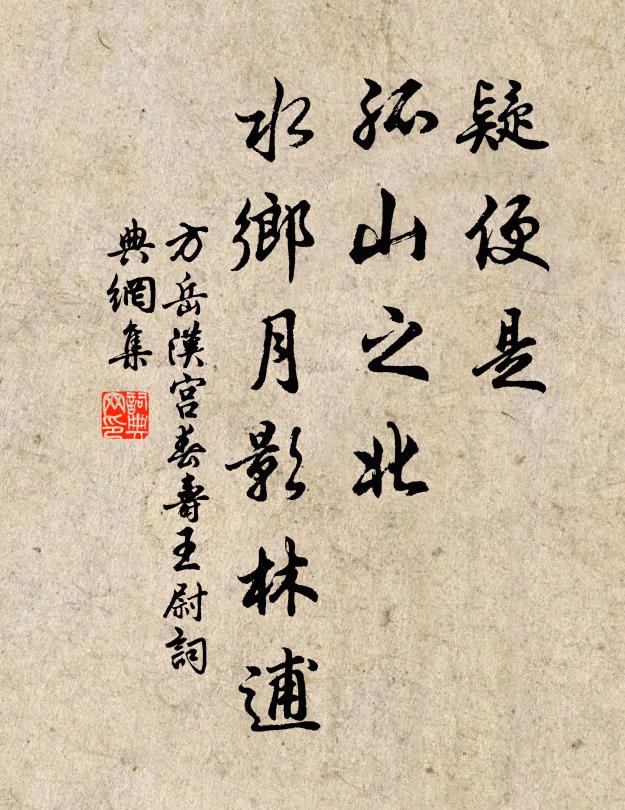 疑便是
孤山之北
水鄉月影林逋
方岳漢宮春壽王尉詞
典網集
詞典網印